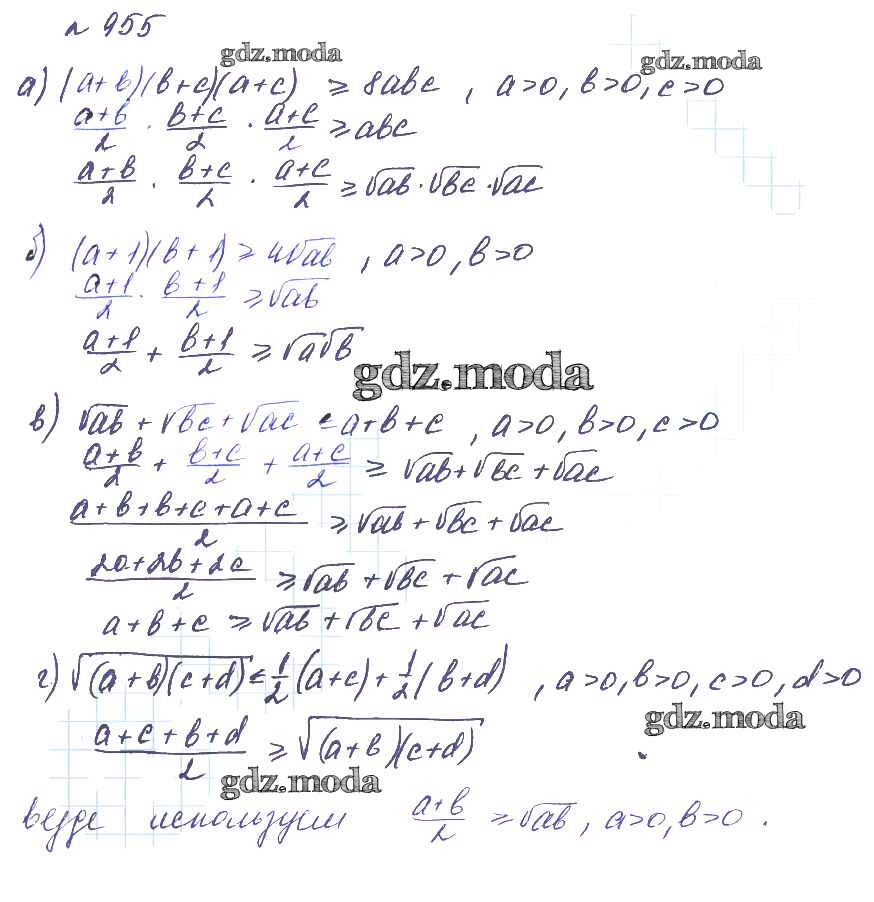 № 955
gdz.moda
gdz.moda
а) (a+b)(b+c)(a+c) ≥ 8abc, a>0, b>0, c>0
(a+b)/2 · (b+c)/2 · (a+c)/2 ≥ abc
(a+b)/2 · (b+c)/2 · (a+c)/2 ≥ √ab · √bc · √ac
б) (a+1)(b+1) ≥ 4√ab, a>0, b>0
(a+1)/2 · (b+1)/2 ≥ √ab
(a+1)/2 + (b+1)/2 ≥ √a√b
gdz.moda
в) √ab + √bc + √ac ≤ a+b+c, a>0, b>0, c>0
(a+b)/2 + (b+c)/2 + (a+c)/2 ≥ √ab + √bc + √ac
(a+b+b+c+a+c)/2 ≥ √ab + √bc + √ac
(2a+2b+2c)/2 ≥ √ab + √bc + √ac
a+b+c ≥ √ab + √bc + √ac
г) √((a+b)(c+d)) ≤ 1/2 (a+c) + 1/2 (b+d), a>0, b>0, c>0, d>0
gdz.moda
(a+c+b+d)/2 ≥ √((a+b)(c+d))
gdz.moda
везде используем (a+b)/2 ≥ √ab, a>0, b>0.